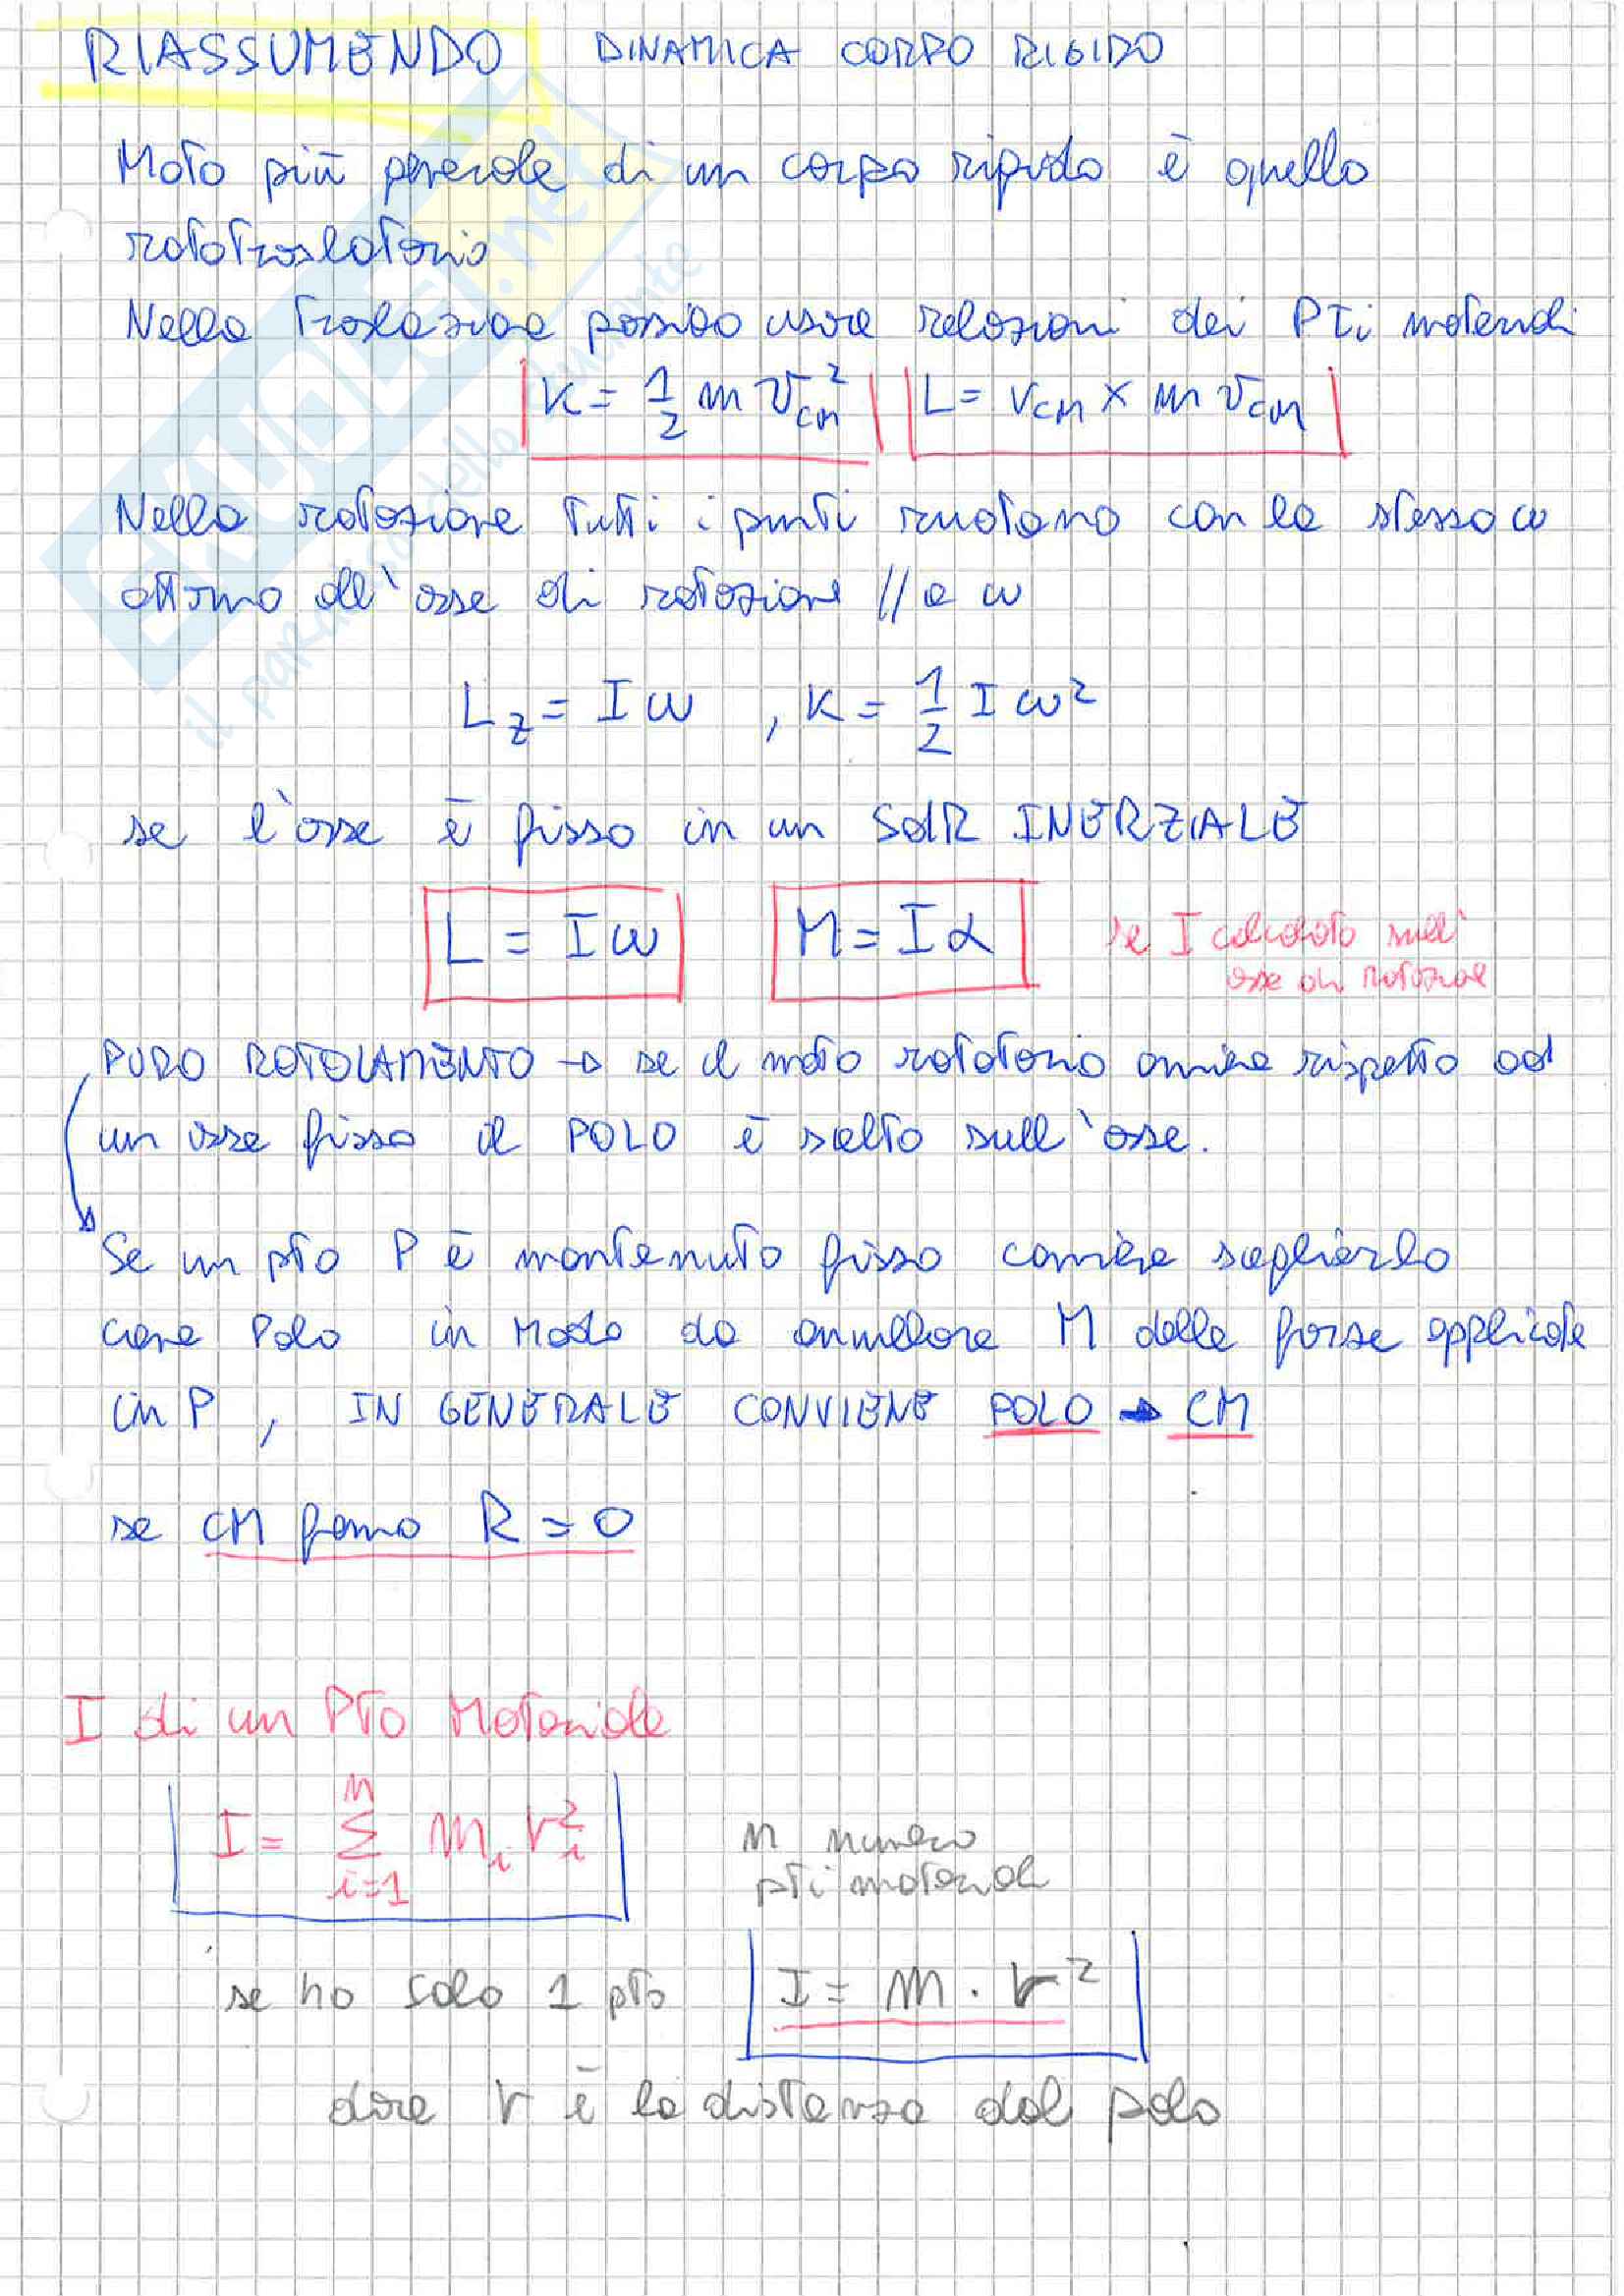 RIASSUMENDO DINAMICA CORPO RIGIDO
Moto più generale di un corpo rigido è quello
rototraslatorio
Nella traslazione posso usare relazioni dei PTi materiali
K = 1/2 m v²cm L = rcm × m vcm
Nella rotazione tutti i punti ruotano con la stessa ω
attorno all'asse di rotazione // a ω
Lz = Iω , K = 1/2 I ω²
se l'asse è fisso in un SdR INERZIALE
L = Iω M = Iα se I calcolato sull'
asse di rotazione
PURO ROTOLAMENTO → se il moto rotatorio avviene rispetto ad
un asse fisso il POLO è scelto sull'asse.
Se un pto P è mantenuto fisso conviene sceglierlo
come Polo in modo da annullare M delle forze applicate
in P , IN GENERALE CONVIENE POLO → CM
se CM fermo R = 0
I di un PTO Materiale
I = Σ mi ri² n numero
n
i=1
pti materiali
se ho solo 1 pto I = m · r²
dove r è la distanza dal polo
SKUOLA.net
il paradiso dello studente